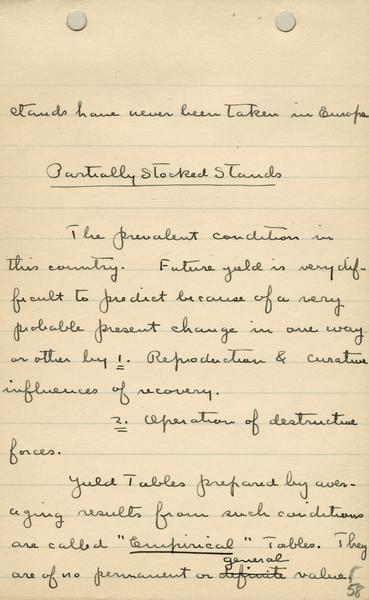 stands have never been taken in Europe
Partially Stocked Stands
The prevalent condition in
this country. Future yield is very dif-
ficult to predict because of a very
probable present change in one way
or other by 1. Reproduction & curative
influences of recovery.
2. Operation of destructive
forces.
Yield Tables prepared by aver-
aging results from such conditions
are called "Empirical" Tables. They
general
are of no permanent or definite value.
58